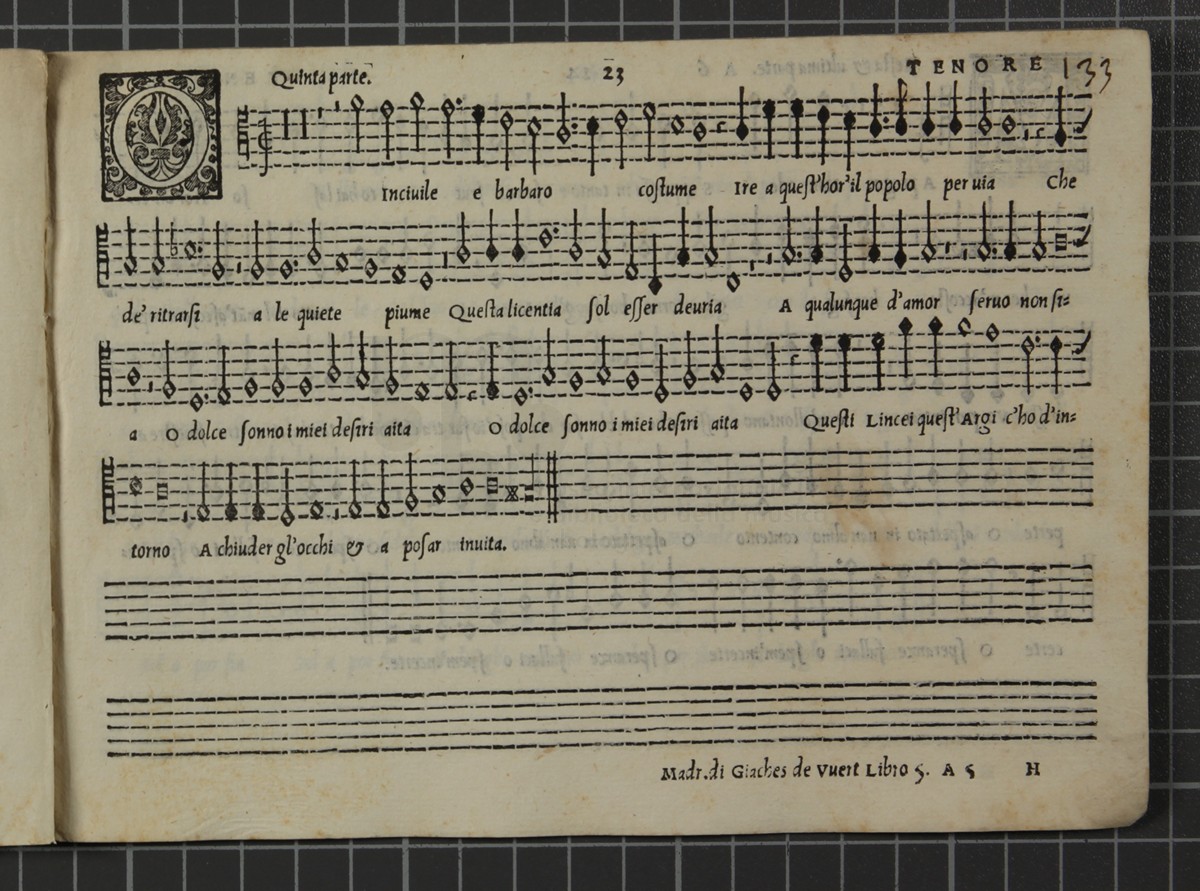 Quinta parte. 23 TENORE 133
O Inciuile e barbaro costume Ire a quest'hor'il popolo per uia Che
de' ritrarsi a le quiete piume Questa licentia sol esser deuria A qualunque d'amor seruo non si=
a O dolce sonno i miei desiri aita O dolce sonno i miei desiri aita Questi Lincei quest'Argi c'ho d'in=
torno A chiuder gl'occhi & a posar inuita.
Madr. di Giaches de Vuert Libro 5. A 5 H